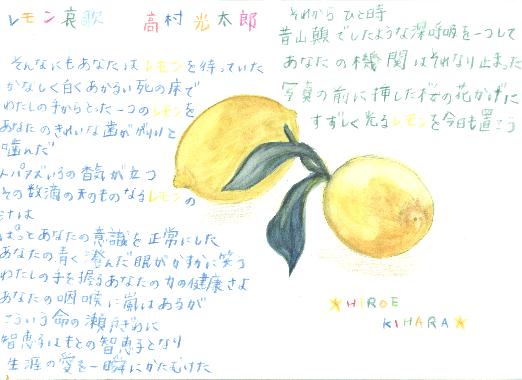 レモン哀歌　高村光太郎
そんなにもあなたはレモンを待っていた
かなしく白くあかるい死の床で
わたしの手からとった一つのレモンを
あなたのきれいな歯ががりりと
噛んだ
トパアズいろの香気が立つ
その数滴の天のものなるレモンの
汁は
ぱっとあなたの意識を正常にした
あなたの青く澄んだ眼がかすかに笑う
わたしの手を握るあなたの力の健康さよ
あなたの咽喉に嵐はあるが
こういう命の瀬戸ぎわに
智恵子はもとの智恵子となり
生涯の愛を一瞬にかたむけた
それからひと時
昔山巓でしたような深呼吸を一つして
あなたの機関はそれなり止まった
写真の前に挿した桜の花かげに
すずしく光るレモンを今日も置こう
HIROE
KIHARA